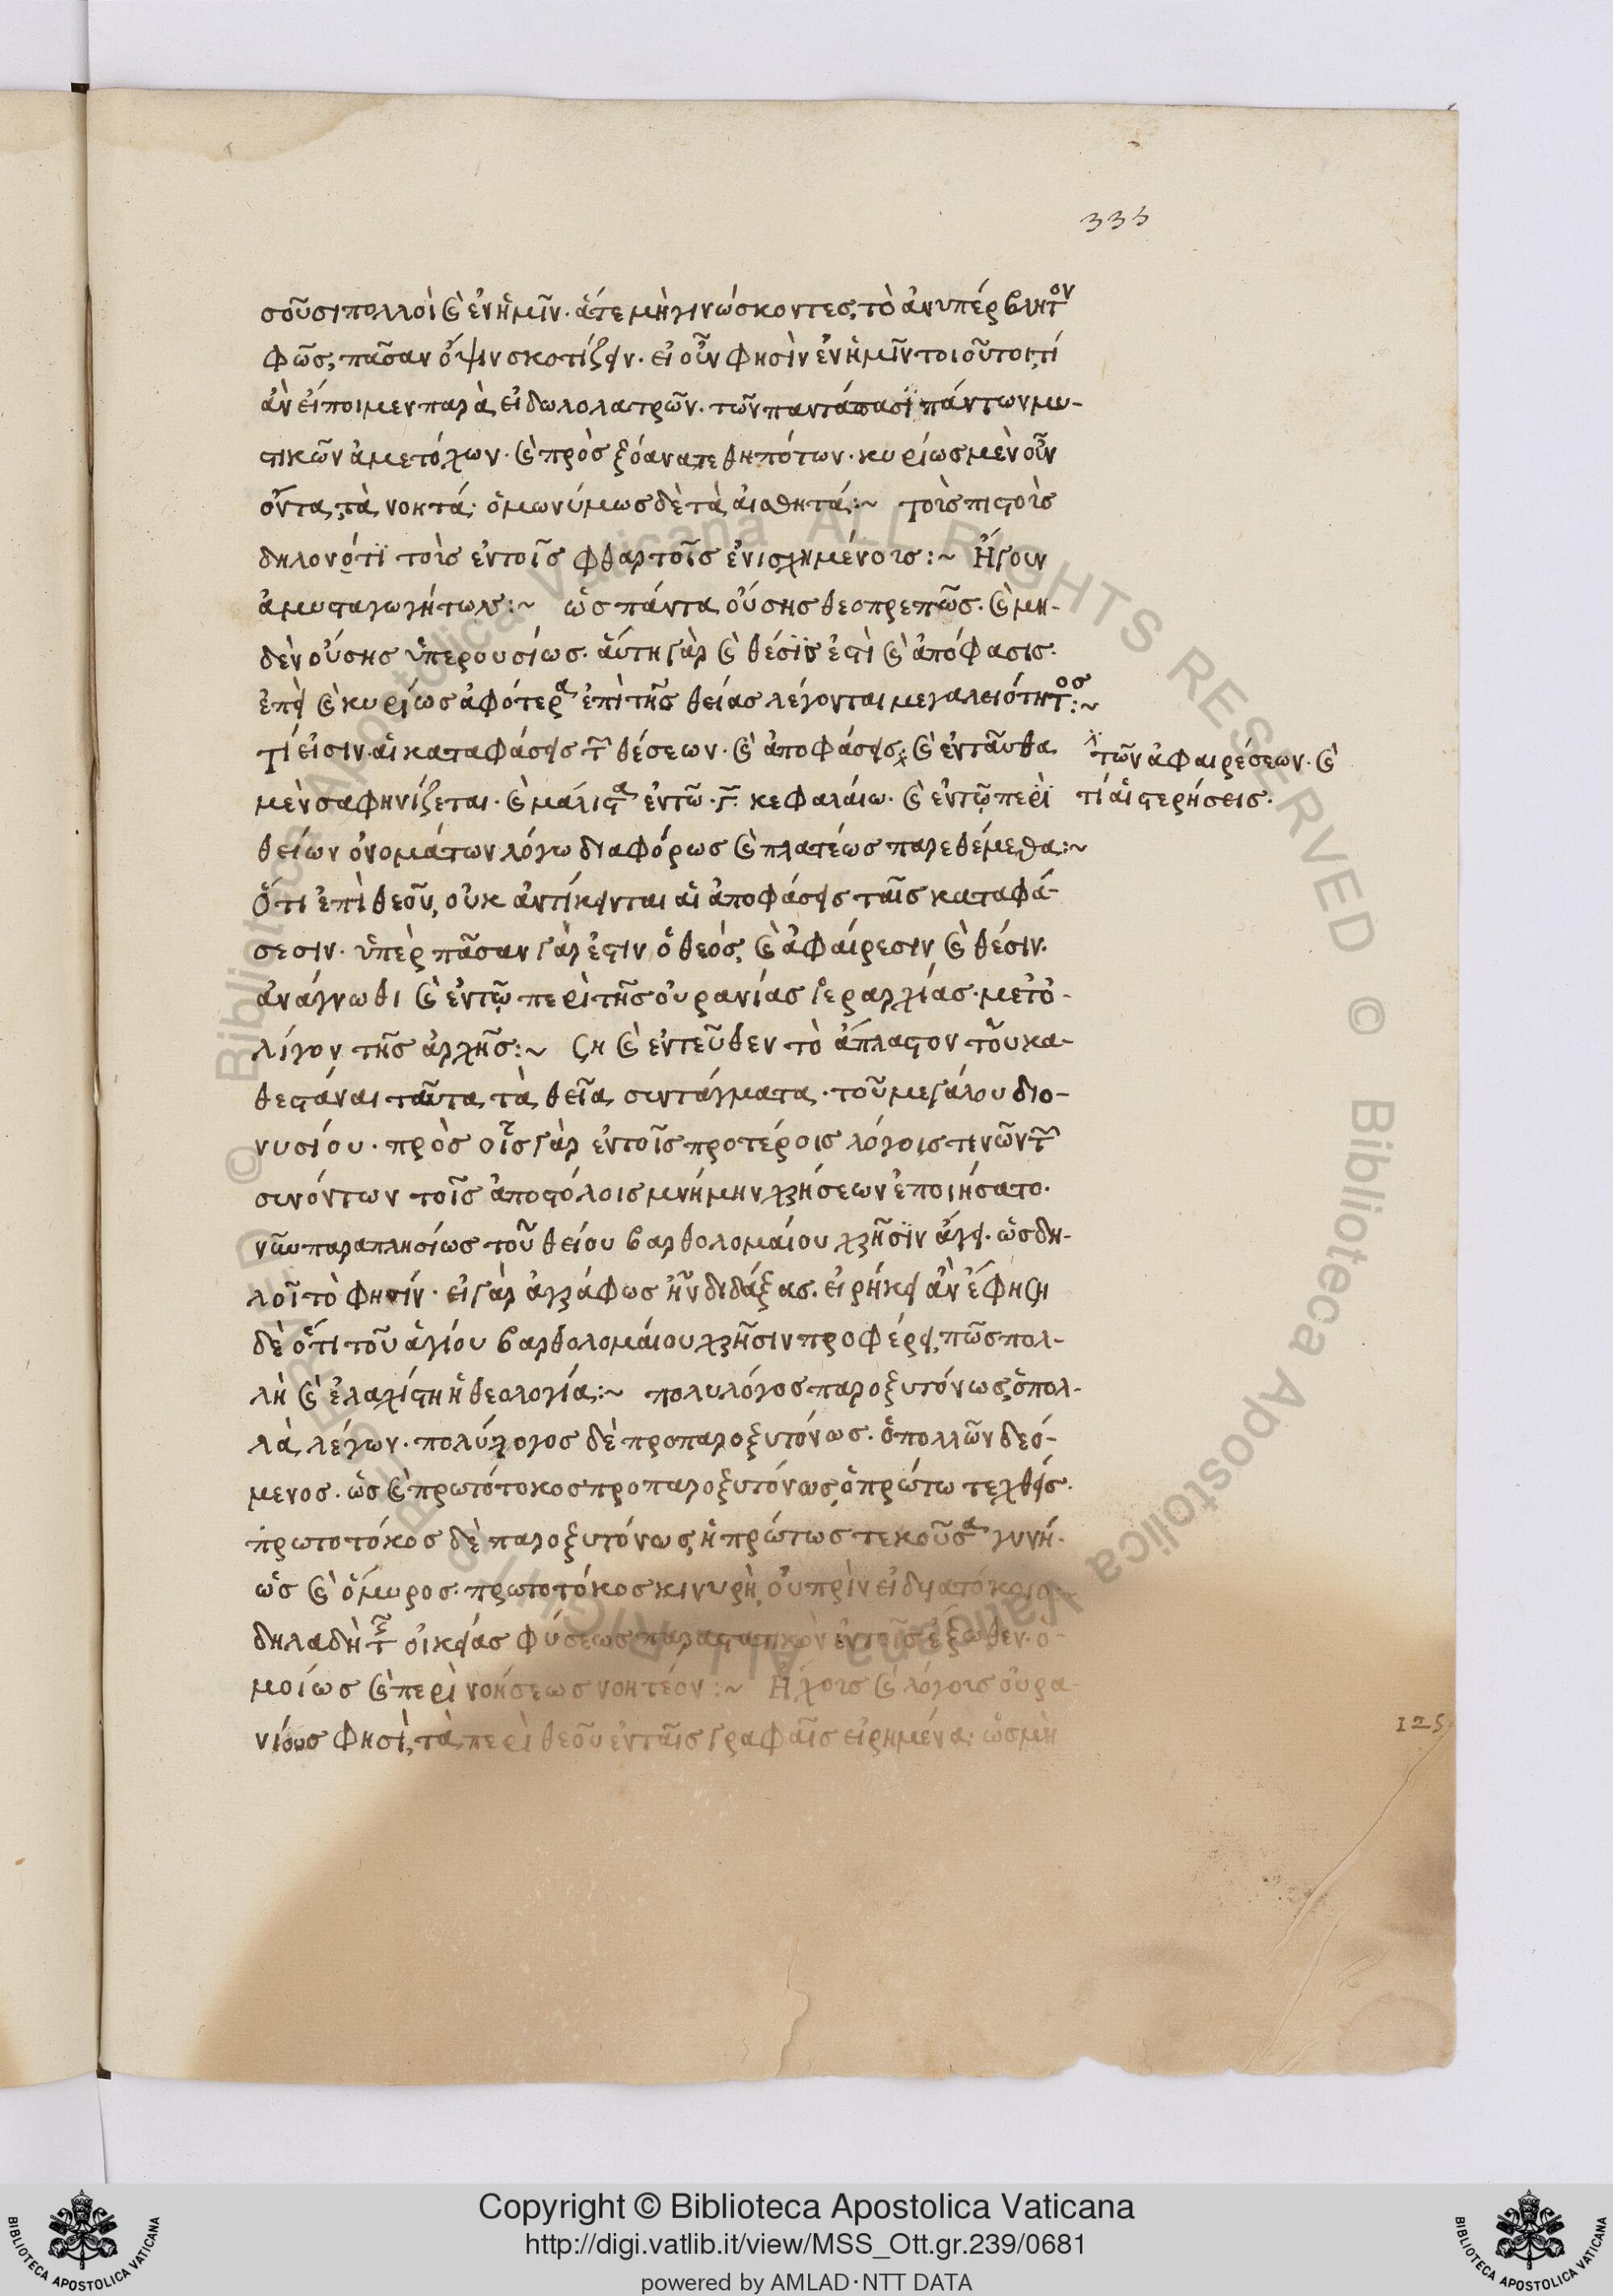 335
σοῦσι πολλοὶ καὶ ἐν ἡμῖν· ἅτε μὴ γινώσκοντες, τὸ ἀνυπέρβλητον
φῶς, πᾶσαν ὄψιν σκοτίζειν· εἰ οὖν φησὶν ἐν ἡμῖν τοιοῦτοι, τί
ἂν εἴποιμεν παρὰ εἰδωλολατρῶν· τῶν παντάπασϊ πάντων μυ-
στικῶν ἀμετόχων· καὶ πρὸς ξόανα τεθηπότων· κυρίως μὲν οὖν
ὄντα, τὰ νοητά· ὁμωνύμως δὲ τὰ αἰσθητά:~ τοῖς πιστοῖς
δηλονότϊ τοῖς ἐν τοῖς φθαρτοῖς ἐνισχημένοις:~ Ἤγουν
ἀμυσταγωγήτων:~ ὡς πάντα οὔσης θεοπρεπῶς· καὶ μη-
δὲν οὔσης ὑπερουσίως· αὕτη γὰρ καὶ θέσϊς ἐστὶ καὶ ἀπόφασις·
ἐπεὶ καὶ κυρίως ἀφότερα ἐπὶ τῆς θείας λέγονται μεγαλειότητος:~
τί εἰσιν αἱ καταφάσεις τῶν θέσεων· καὶ ἀποφάσεις· καὶ ἐνταῦθα
τῶν ἀφαιρέσεων· καὶ
τί αἱ στερήσεις·
μὲν σαφηνίζεται· καὶ μάλιστα ἐν τῶ γ κεφαλαίω· καὶ ἐν τῷ περὶ
θείων ὀνομάτων λόγω διαφόρως καὶ πλατέως παρεθέμεθα:~
Ὅτι ἐπὶ θεοῦ, οὐκ ἀντίκεινται αἱ ἀποφάσεις ταῖς καταφά-
σεσιν· ὑπὲρ πᾶσαν γάρ ἐστιν ὁ θεός, καὶ ἀφαίρεσιν, καὶ θέσιν·
ἀνάγνωθι καὶ ἐν τῷ περὶ τῆς οὐρανίας ἱεραρχίας· μετ' ὀ-
λίγον τῆς ἀρχῆς:~ ση καὶ ἐντεῦθεν τὸ ἄπλαστον τοῦ κα-
θεστάναι ταῦτα τὰ θεῖα συντάγματα· τοῦ μεγάλου διο-
νυσίου· πρὸς οἷς γὰρ ἐν τοῖς προτέροις λόγοις τινῶν τῶν
συνόντων τοῖς ἀποστόλοις μνήμην χρήσεων ἐποιήσατο·
νῦν παραπλησίως τοῦ θείου βαρθολομαίου χρῆσϊν ἄγει· ὡς δη-
λοῖ τὸ φησίν· εἰ γὰρ ἀγράφως ἦν διδάξας· εἰρήκει ἂν ἔφη ση
δὲ ὅτι τοῦ ἁγίου βαρθολομαίου χρῆσιν προφέρει, πῶς πολ-
λὴ καὶ ἐλαχίστη ἡ θεολογία:~ πολυλόγος παροξυτόνως, ὁ πολ-
λὰ λέγων· πολύλογος δὲ προπαροξυτόνως· ὁ πολλῶν δεό-
μενος· ὡς καὶ πρωτότοκος προπαροξυτόνως, ὁ πρώτω τεχθείς·
πρωτοτόκος δὲ παροξυτόνως, ἡ πρώτως τεκοῦσα γυνή·
ὡς καὶ ὅμυρος· πρωτοτόκος κινυρὴ, οὐ πρὶν εἰδυῖα τόκοιο·
δηλαδὴ τῆς οἰκείας φύσεως παραστατικὸν ἐν τοῖς ἔξωθεν· ὁ-
μοίως καὶ περὶ νοήσεως νοητέον:~ Ἤχοις καὶ λόγοις οὐρα-
νίους φησὶ, τὰ περὶ θεοῦ ἐν ταῖς γραφαῖς εἰρημένα· ὡς μὴ
125
Copyright © Biblioteca Apostolica Vaticana
http://digi.vatlib.it/view/MSS_Ott.gr.239/0681
powered by AMLAD·NTT DATA